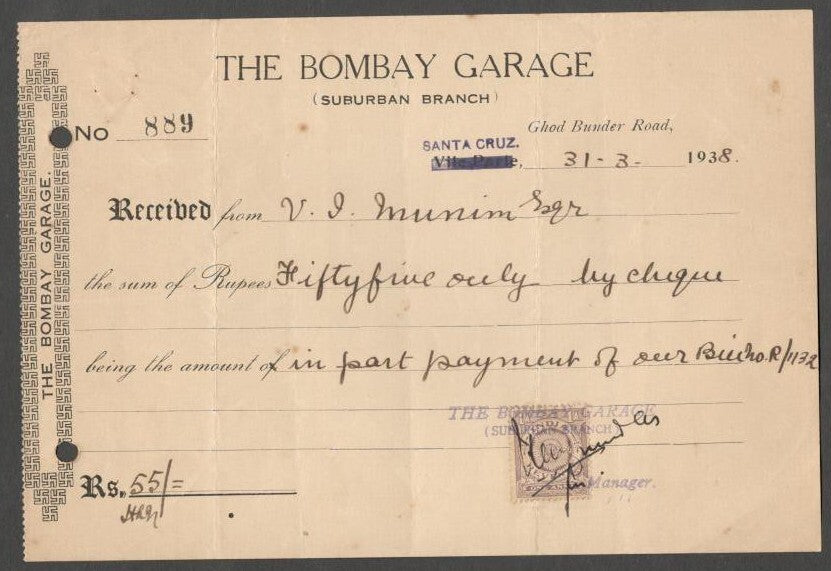 THE BOMBAY GARAGE
(SUBURBAN BRANCH)
THE BOMBAY GARAGE.
No 889
Ghod Bunder Road,
SANTA CRUZ.
Vile Parle, 31-3- 1938.
Received from V. I. Munim Esqr
the sum of Rupees Fiftyfive only by cheque
being the amount of in part payment of our Bill No. R/1132
THE BOMBAY GARAGE
(SUBURBAN BRANCH)
Manager.
Rs. 55/=